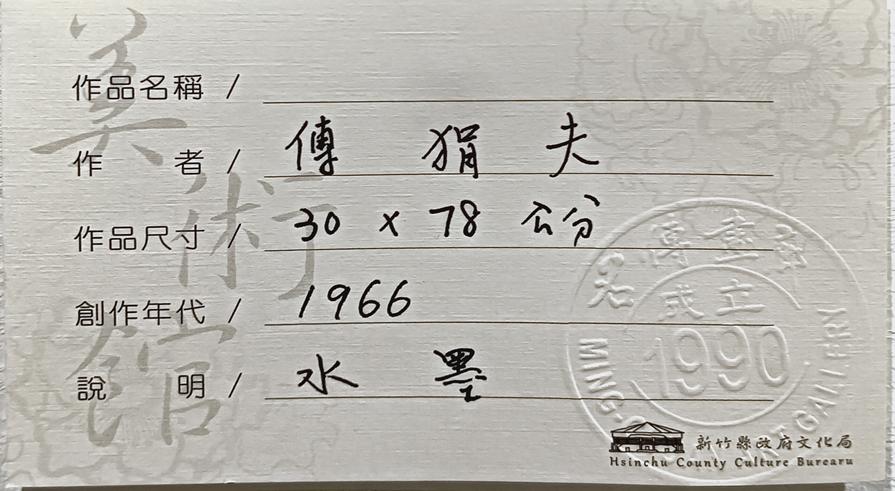 美術館
作品名稱 /
作者 / 傅狷夫
作品尺寸 / 30 x 78 公分
創作年代 / 1966
說明 / 水墨
成立
1990
新竹縣政府文化局
Hsinchu County Culture Burearu